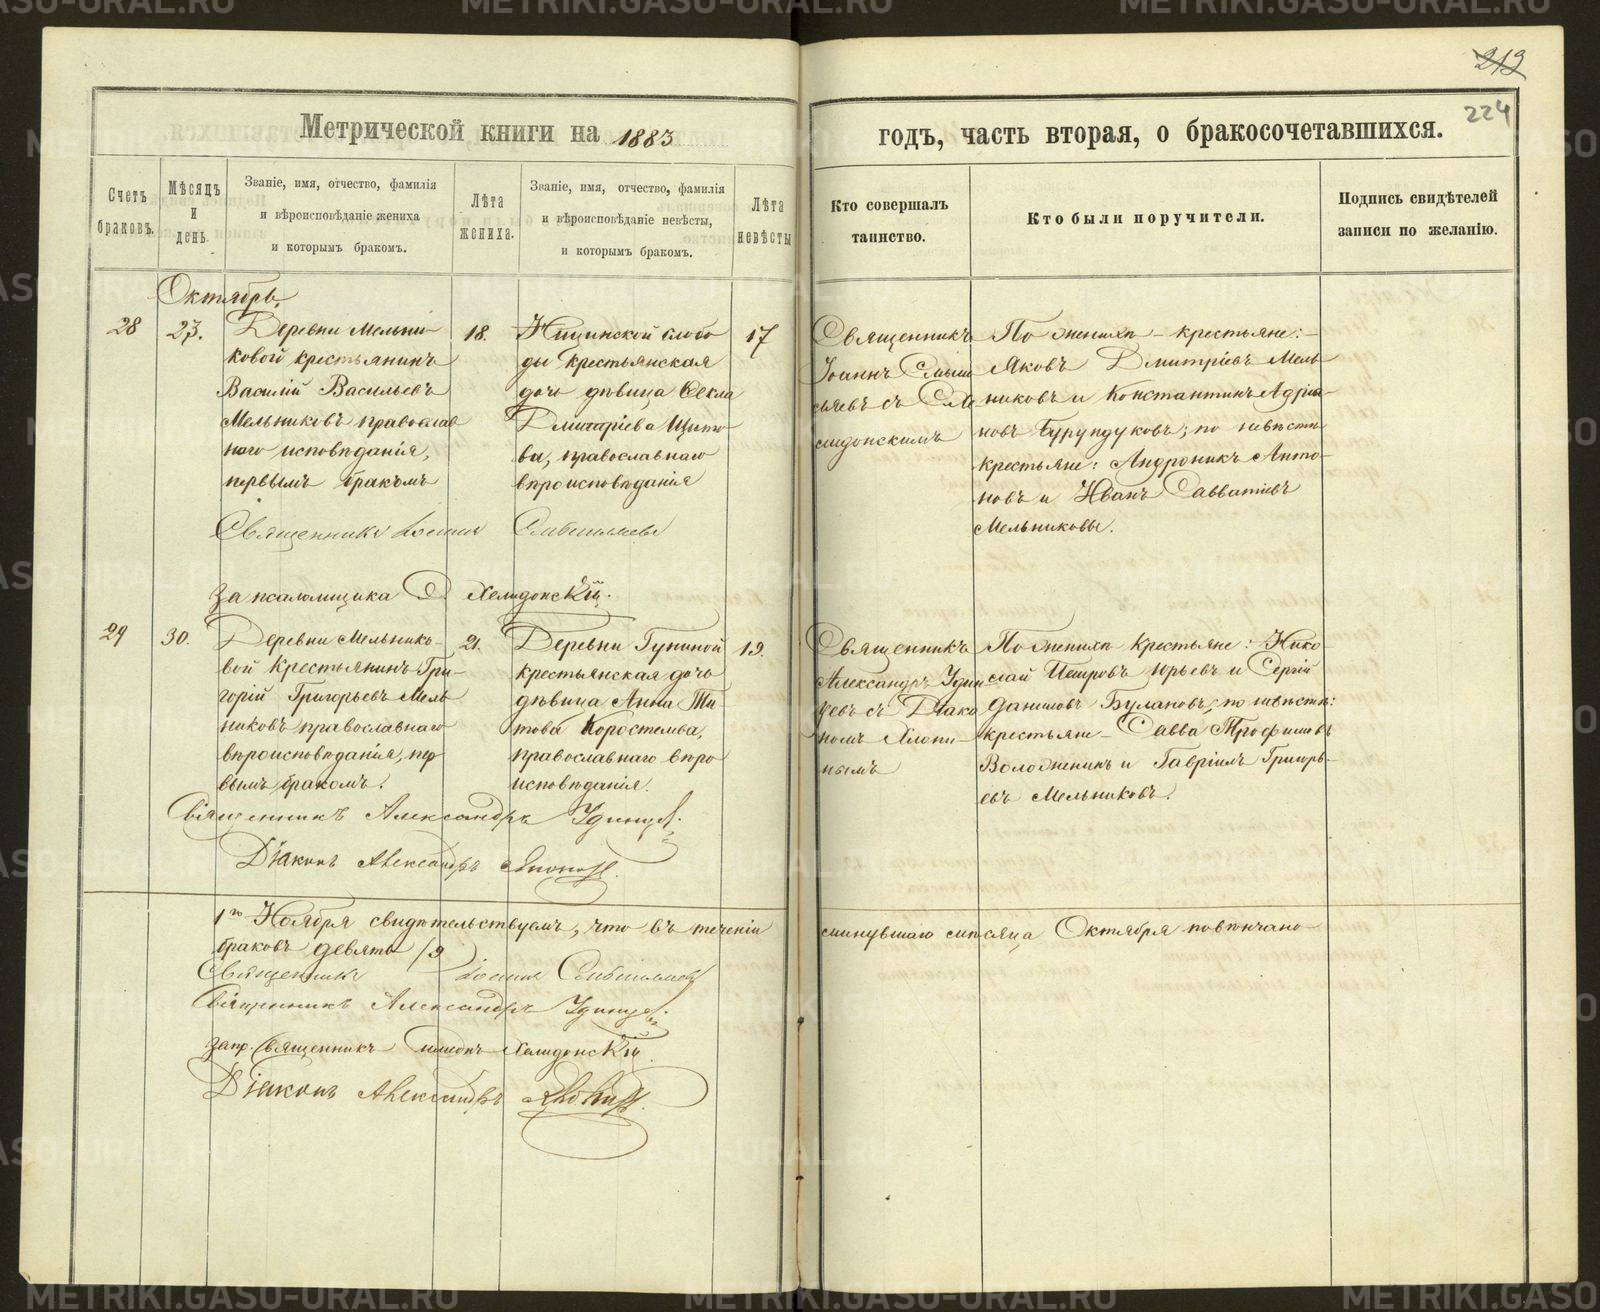 213
224
Метрической книги на 1883
годъ, часть вторая, о бракосочетавшихся.
Счетъ браковъ.
Мѣсяцъ и день.
Званіе, имя, отчество, фамилія
и вѣроисповѣданіе жениха
и которымъ бракомъ.
Лѣта жениха.
Званіе, имя, отчество, фамилія
и вѣроисповѣданіе невѣсты,
и которымъ бракомъ.
Лѣта невѣсты
Кто совершалъ
таинство.
Кто были поручители.
Подпись свидѣтелей
записи по желанію.
Октябрь.
28
23.
Деревни Мельни-
ковой крестьянинъ
Василій Васильевъ
Мельниковъ православ
наго исповѣданія,
первымъ бракомъ
18.
Ницинской слобо
ды крестьянская
дочь дѣвица Ѳекла
Дмитріева
православнаго
вѣроисповѣданія
17
Священникъ
Іоаннъ
съ
По женихѣ - крестьяне:-
Яковъ Дмитріевъ Мель
никовъ и Константинъ Адріа-
новъ Бурундуковъ; по невѣстѣ
крестьяне: Андроникъ Анто-
новъ и Иванъ Савватіевъ
Мельниковы.
Священникъ Іоаннъ
За псаломщика Хелидонскій.
29
30.
Деревни Мельнико-
вой крестьянинъ Гри-
горій Григорьевъ Мель
никовъ православнаго
вѣроисповѣданія, пер
вымъ бракомъ.
21.
Деревни Гуниной
крестьянская дочь
дѣвица Анна Ти-
това Коростелева,
православнаго вѣро
исповѣданія.
19.
Священникъ
Александръ Удин
цевъ съ Діако
номъ
По женихѣ крестьяне: Нико-
лай Петровъ Юрьевъ и Сергій
Даниловъ Булановъ, по невѣстѣ:
крестьяне - Савва Трофимовъ
Воложенинъ и Гавріилъ Григорь-
евъ Мельниковъ.
Священникъ Александръ Удинцевъ.
Діаконъ Александръ
1го Ноября свидѣтельствуемъ, что въ теченіи
минувшаго мѣсяца Октября повѣнчано
браковъ девять /9
Священникъ Іоаннъ
Священникъ Александръ Удинцевъ.
Священникъ Симеонъ Хелидонскій
Діаконъ Александръ
METRIKI.GASO-URAL.RU